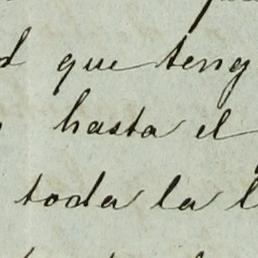 que teng
hasta el
toda la l